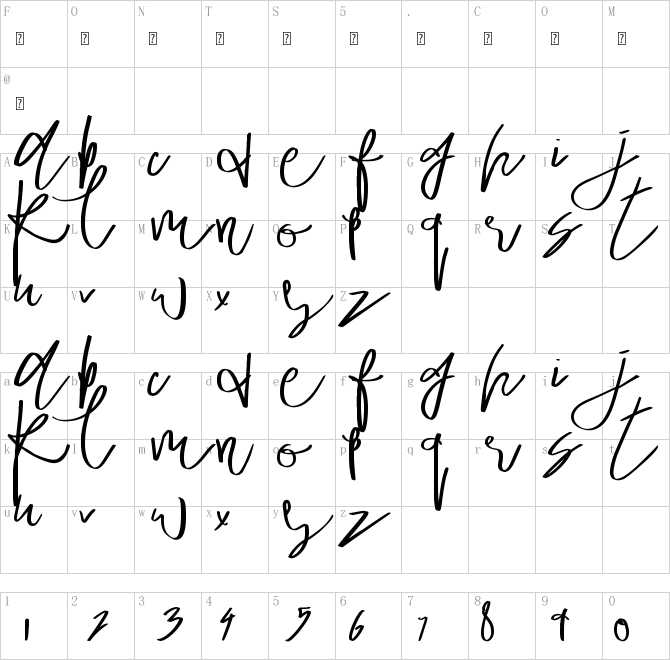 F O N T S 5 . C O M
@
A B C D E F G H I J
a b c d e f g h i j
K L M N O P Q R S T
k l m n o p q r s t
U V W X Y Z
u v w x y z
a b c d e f g h i j
a b c d e f g h i j
k l m n o p q r s t
k l m n o p q r s t
u v w x y z
u v w x y z
1 2 3 4 5 6 7 8 9 0
1 2 3 4 5 6 7 8 9 0